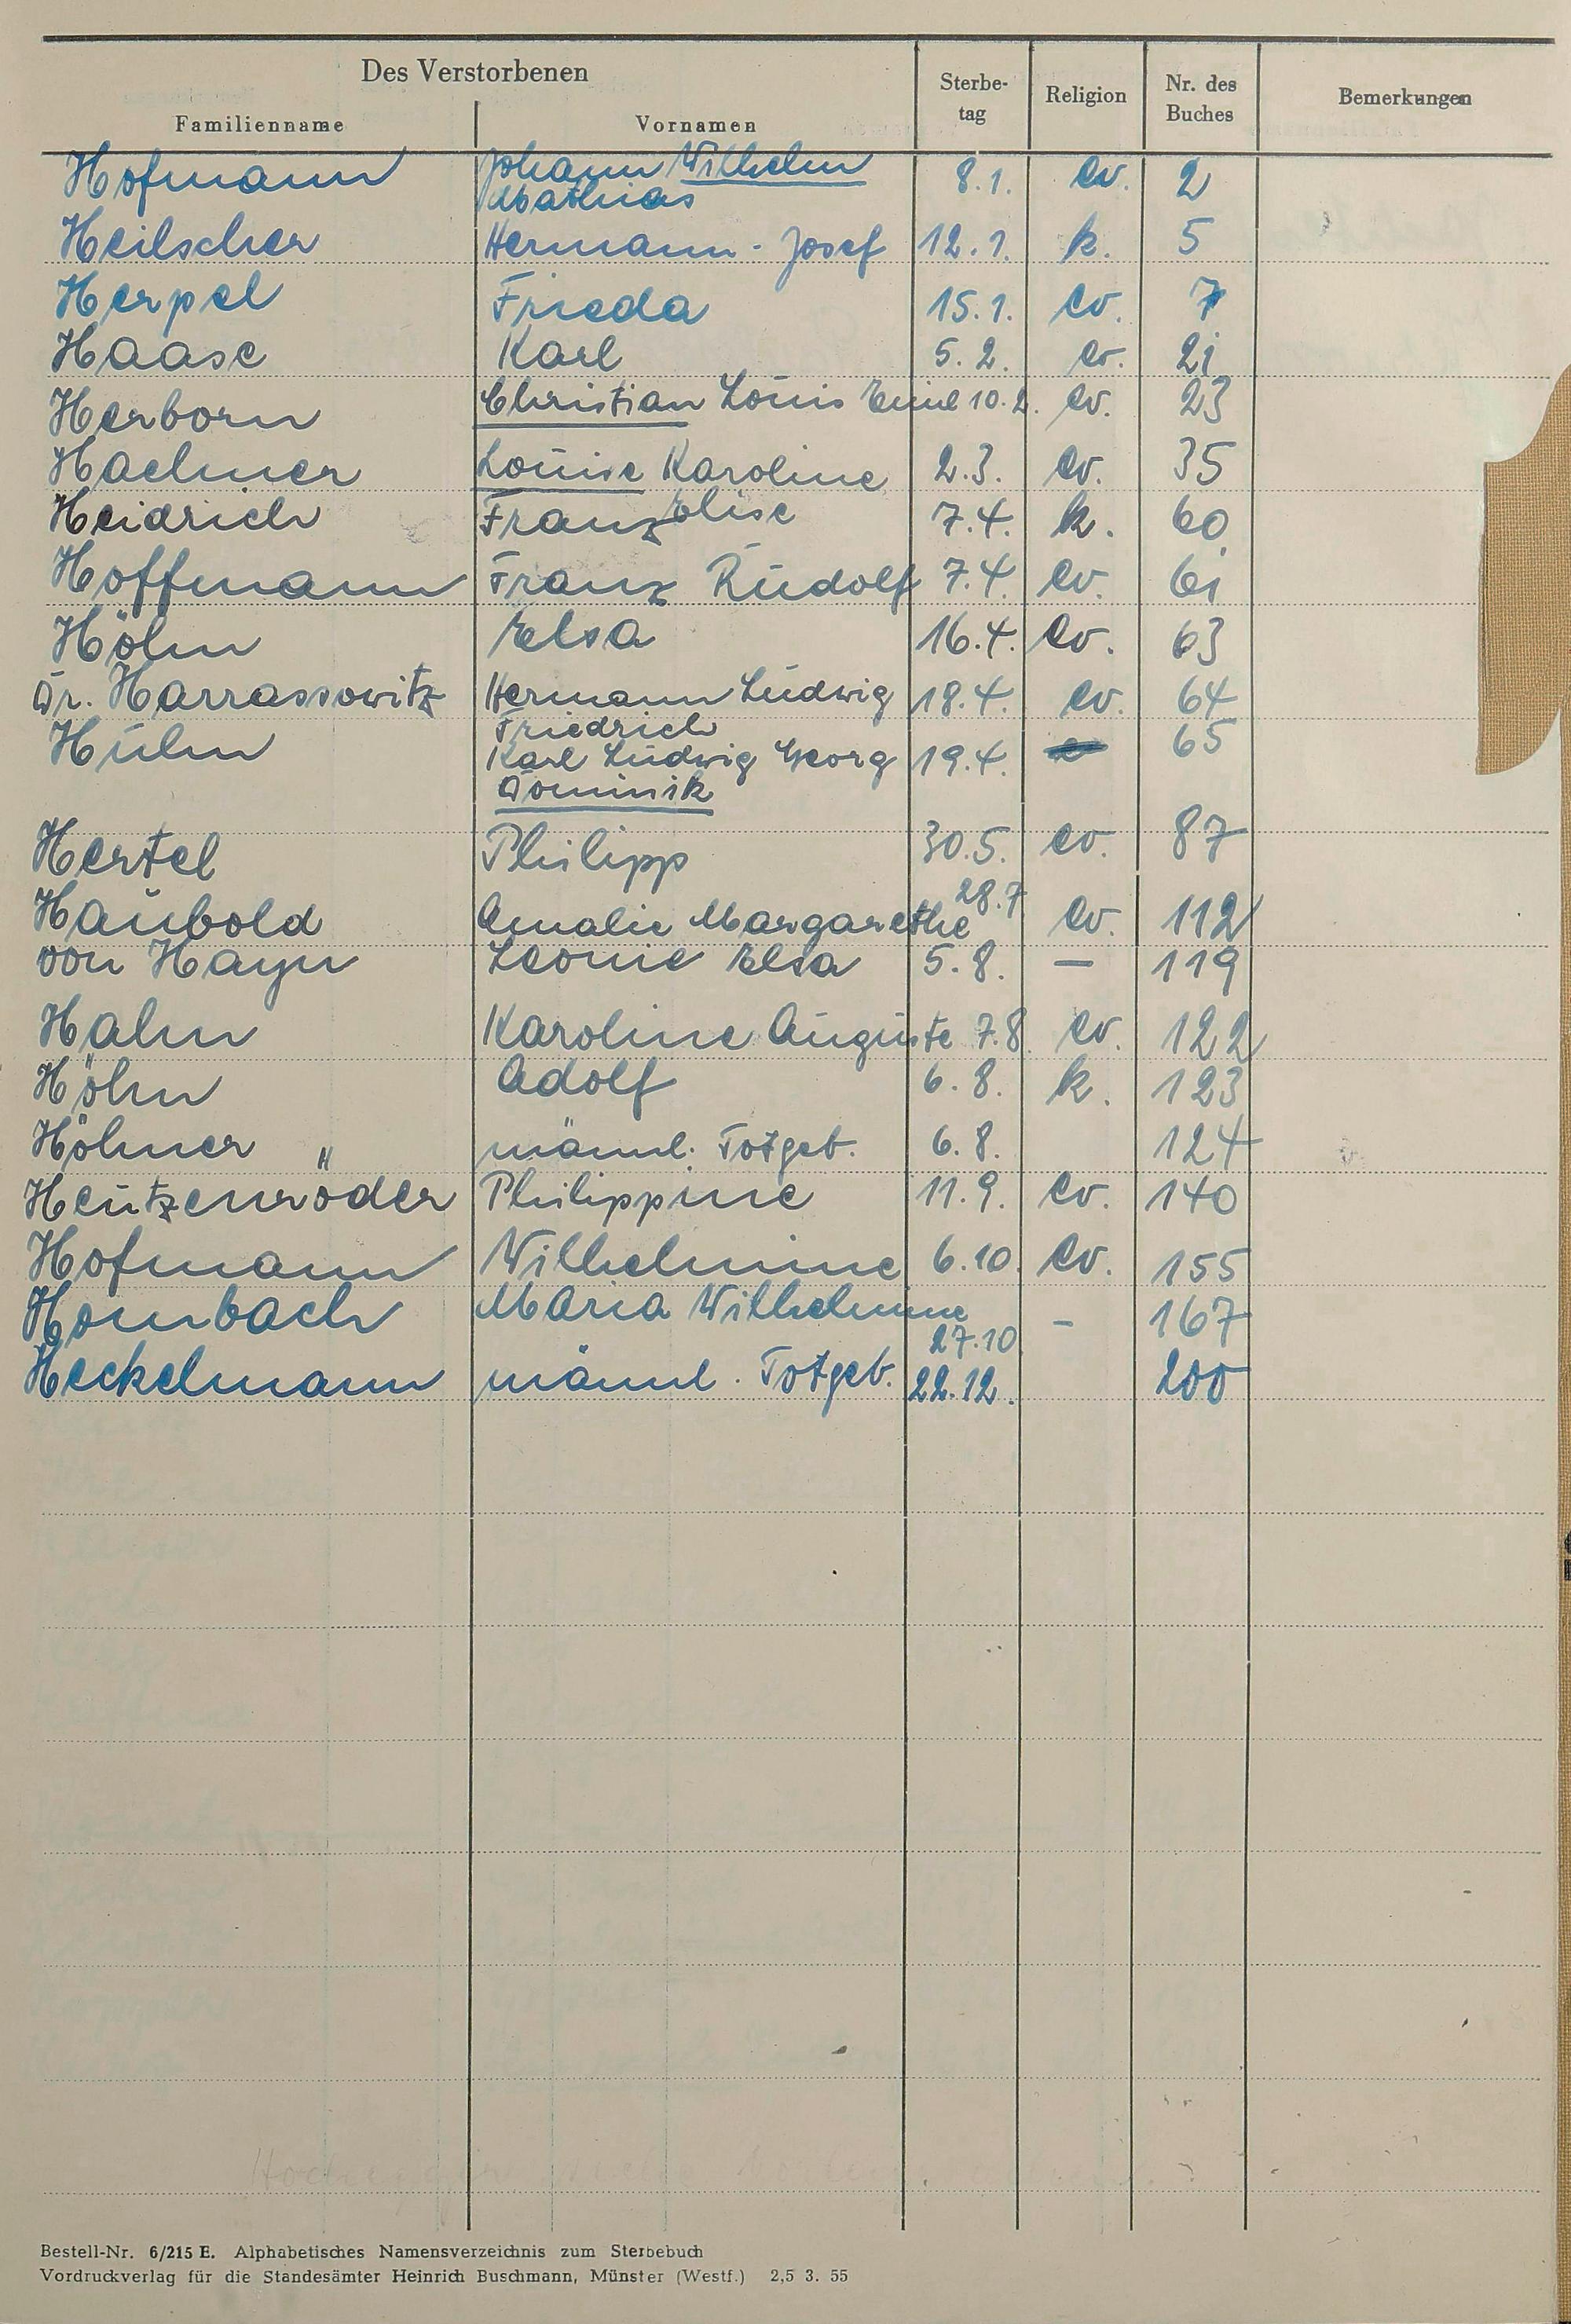 Des Verstorbenen
Familienname Vornamen Sterbe-tag Religion Nr. des Buches Bemerkungen
Hofmann Johann Wilhelm Mathias 8.1. ev. 2
Heilscher Hermann-Josef 12.1. k. 5
Herpel Frieda 15.1. ev. 7
Haase Karl 5.2. ev. 21
Herborn Christian Louis Emil 10.2. ev. 23
Haehner Louise Karoline Elise 2.3. ev. 35
Heidrich Franz 7.4. k. 60
Hoffmann Franz Rudolf 7.4. ev. 61
Höhn Elsa 16.4. ev. 63
Dr. Harrassowitz Hermann Ludwig Friedrich 18.4. ev. 64
Hühn Karl Ludwig Georg Dominik 19.4. 65
Hertel Philipp 30.5. ev. 87
Haubold Amalie Margarethe 28.7 ev. 112
von Hayn Leonie Elsa 5.8. – 119
Hahn Karoline Auguste 7.8 ev. 122
Höhn Adolf 6.8. k. 123
Höhner männl. Totgeb. 6.8. 124
Heutzenröder Philippine 11.9. ev. 140
Hofmann Wilhelmine 6.10. ev. 155
Hombach Maria Wilhelmine 27.10 – 167
Heckelmann männl. Totgeb. 22.12. 200
Bestell-Nr. 6/215 E. Alphabetisches Namensverzeichnis zum Sterbebuch
Vordruckverlag für die Standesämter Heinrich Buschmann, Münster (Westf.) 2,5 3. 55